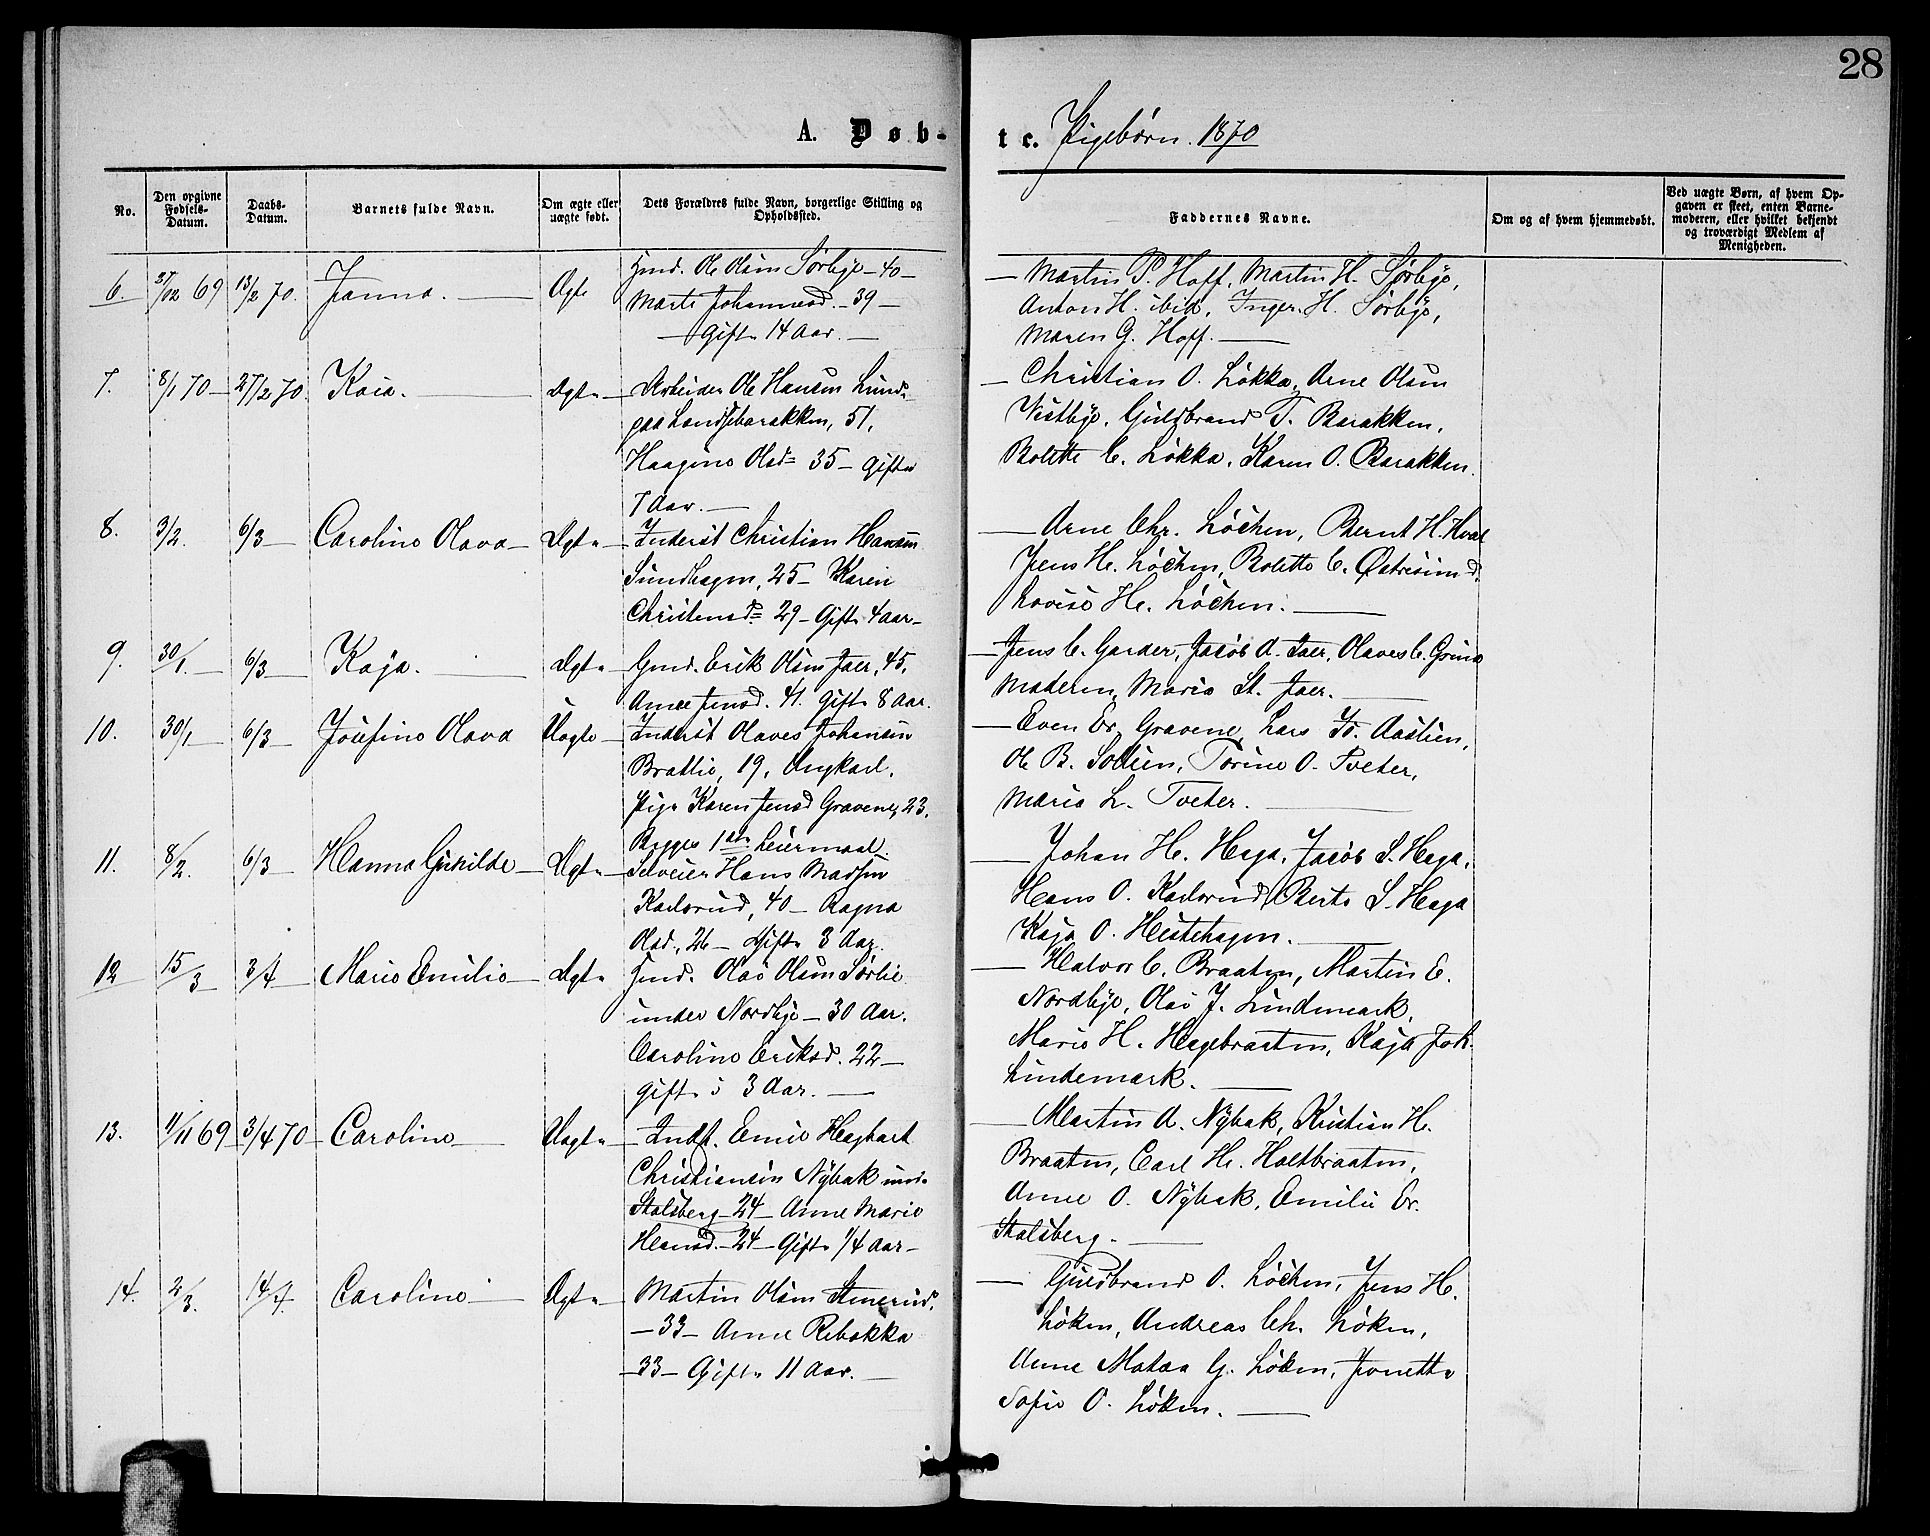 28
A. Døb-
te. Pigebørn. 1870
No.
Den opgivne Fødsels-Datum.
Daabs-Datum.
Barnets fulde Navn.
Om ægte eller uægte født.
Dets Forældres fulde Navn, borgerlige Stilling og Opholdssted.
Faddernes Navne.
Om og af hvem hjemmedøbt.
Ved uægte Børn, af hvem Opgaven er skeet, enten Barnemoderen, eller hvilket bekjendt og troværdigt Medlem af Menigheden.
6. 31/12 69 13/2 70. Janna. — Ægte
Hmd. Ole Olsen Sørbye — 40 —
Marte Johannesd. — 39 —
— Gifte 14 Aar. —
— Martin P. Hoff, Martin H. Sørbye,
Anton H. ibid, Inger H. Sørbye,
Maren G. Hoff. —
7. 8/1 70 — 27/2 70. Kaia. — Ægte —
Arbeider Ole Hansen Lund
paa Landsebarakken, 51,
Haagine Olsd = 35 — Gifte
7 Aar. —
— Christian O. Løkka, Arne Olsen
Vestbye, Guldbrand T. Barakken,
Bolette C. Løkka, Karen O. Barakken.
8. 3/2. 6/3 — Caroline Olava — Ægte —
Inderst Christian Hansen
Sundhagen, 25 — Karen
Christensd = 29 — Gifte 4 Aar —
— Arne Chr. Løchen, Bernt H. Hval
Jens H. Løchen, Bolette C. Østreim d.
Lovise H. Løchen. —
9. 30/1. 6/3 — Kaja. — Ægte —
Gmd. Erik Olsen Jaer, 45,
Anne Jensd. 41. Gifte 8 Aar.
— Jens C. Garder, Jacob A. Jaer, Olaves C. Grina
Moderen, Marie St. Jaer. —
10. 30/1 — 6/3 — Josefine Olava Uægte —
Inderst Olaves Johansen
Brattlie, 19, Ungkarl.
Pige Karen Jensd Gravene, 23.
Begges 1ste Leiermaal.
— Even Er. Gravene, Lars Jo. Aaslien,
Ole B. Sollien, Torine O. Tveter,
Marie L. Tveter. —
11. 8/2. 6/3 — Hanna Gunilde — Ægte —
Selveier Hans Madsen
Karlsrud, 40 — Ragna
Olsd, 26 — Gifte 3 Aar.
— Johan H. Haga, Jacob S. Haga,
Hans O. Karlsrud, Berte S. Haga
Kaja O. Hestehagen. —
12 15/3 — 3/4 — Marie Emilie — Ægte —
Hmd. Olas Olsen Sørlie
under Nordbye — 30 Aar.
Caroline Eriksd. 22 —
Gifte i 3 Aar. —
— Halvor C. Braaten, Martin E.
Nordbye, Olas J. Lindemark,
Marie H. Hagebraaten, Kaja Joh.
Lindemark. —
13. 11/11 69 — 3/4 70 — Caroline — Uægte —
Indst. Emil Hagbart
Christiansen Nybak und.
Stalsberg — 24 — Anne Marie
Hansd. — 24 — Gifte 1/4 Aar —
— Martin A. Nybak, Kristian H.
Braaten, Carl H. Holtbraaten,
Anne O. Nybak, Emilie Er.
Stalsberg. —
14. 2/3. 14/4. Caroline — Ægte —
Martin Olsen
— 33 — Anne Rebekka
— 33 — Gifte 11 Aar. —
— Guldbrand O. Løchen, Jens H.
Løken, Andreas Ch. Løken,
Anne Matea G. Løken, Jonette
Sofie O. Løken. —